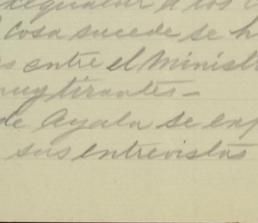 a los
cosa sucede se h
entre el Minist
muy tirantes -
de Ayala se exp
sus entrevistas